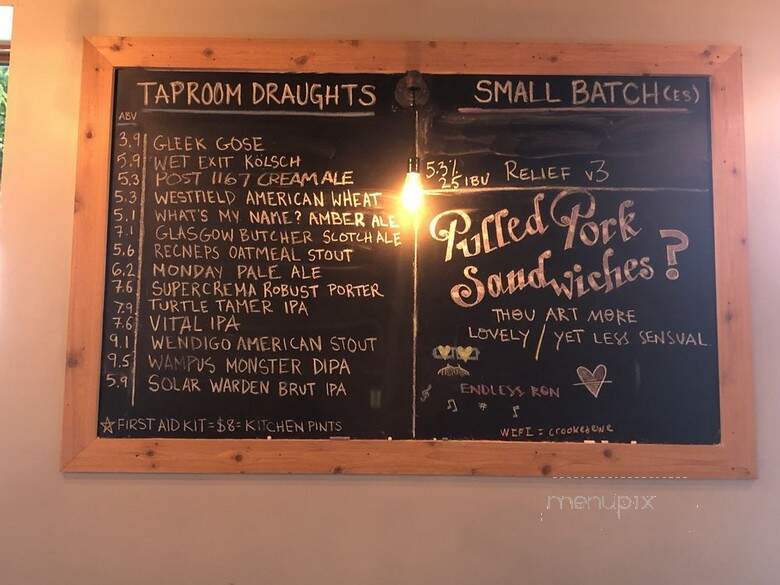 TAPROOM DRAUGHTS
ABV
3.9 GLEEK GOSE
5.9 WET EXIT KÖLSCH
5.3 POST 1167 CREAM ALE
5.3 WESTFIELD AMERICAN WHEAT
5.1 WHAT'S MY NAME? AMBER ALE
7.1 GLASGOW BUTCHER SCOTCH ALE
5.6 RECNEPS OATMEAL STOUT
6.2 MONDAY PALE ALE
7.6 SUPERCREMA ROBUST PORTER
7.9 TURTLE TAMER IPA
7.6 VITAL IPA
9.1 WENDIGO AMERICAN STOUT
9.5 WAMPUS MONSTER DIPA
5.9 SOLAR WARDEN BRUT IPA
☆FIRST AID KIT = $8 = KITCHEN PINTS
SMALL BATCH(ES)
5.3% RELIEF V3
25 IBU
Pulled Pork
Sandwiches?
THOU ART MORE
LOVELY / YET LESS SENSUAL
ENDLESS RON
WIFI = crookedewe
menupix